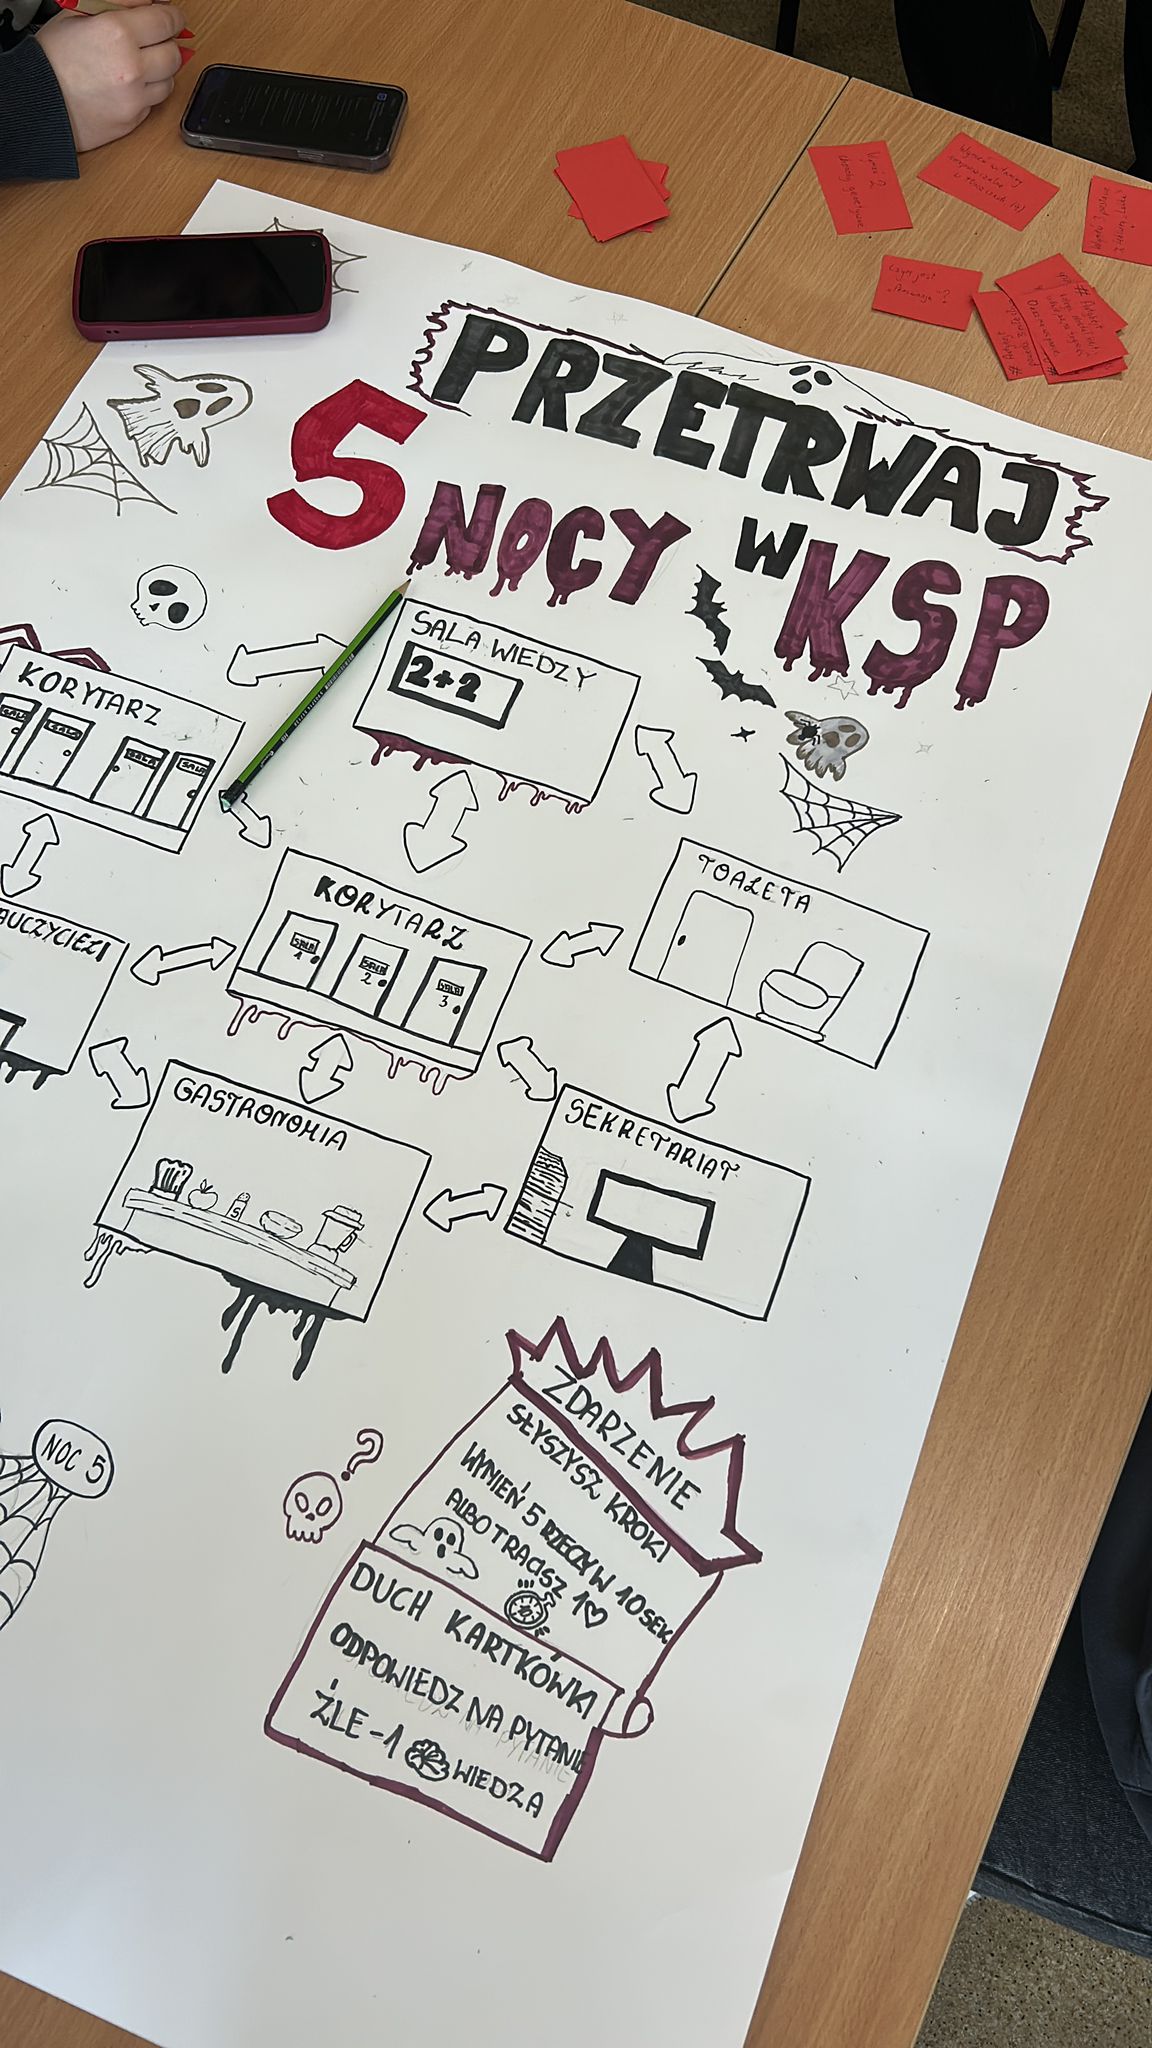 PRZETRWAJ
5 NOCY W KSP
SALA WIEDZY
2+2
KORYTARZ
SALA
SALA
SALA
SALA
TOALETA
KORYTARZ
SALA
1
SALA
2
SALA
3
AUCZYCIELI
GASTRONOMIA
S
SEKRETARIAT
NOC 5
?
ZDARZENIE
SŁYSZYSZ KROKI
WYMIEŃ 5 RZECZY W 10 SEK
ALBO TRACISZ 1♡
DUCH KARTKÓWKI
ODPOWIEDZ NA PYTANIE
ŹLE -1 WIEDZA
Wymień 2
choroby genetyczne
Czym jest